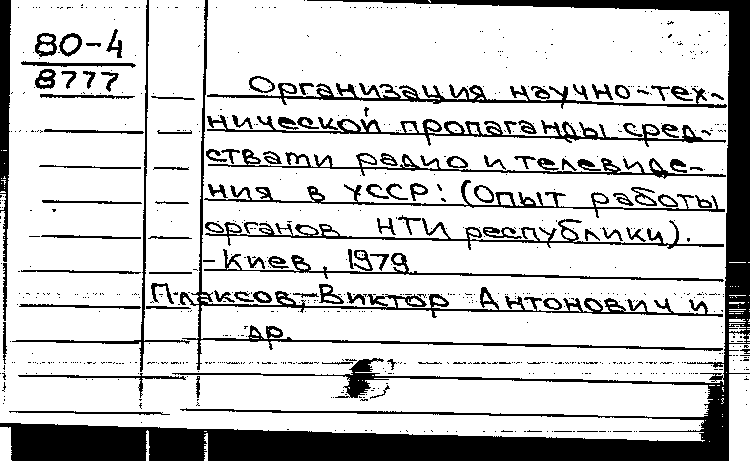 80-4
8777
Организация научно-тех-
нической пропаганды сред-
ствами радио и телевиде-
ния в УССР: (Опыт работы
органов НТИ республики).
-Киев, 1979.
Плаксов, Виктор Антонович и
др.